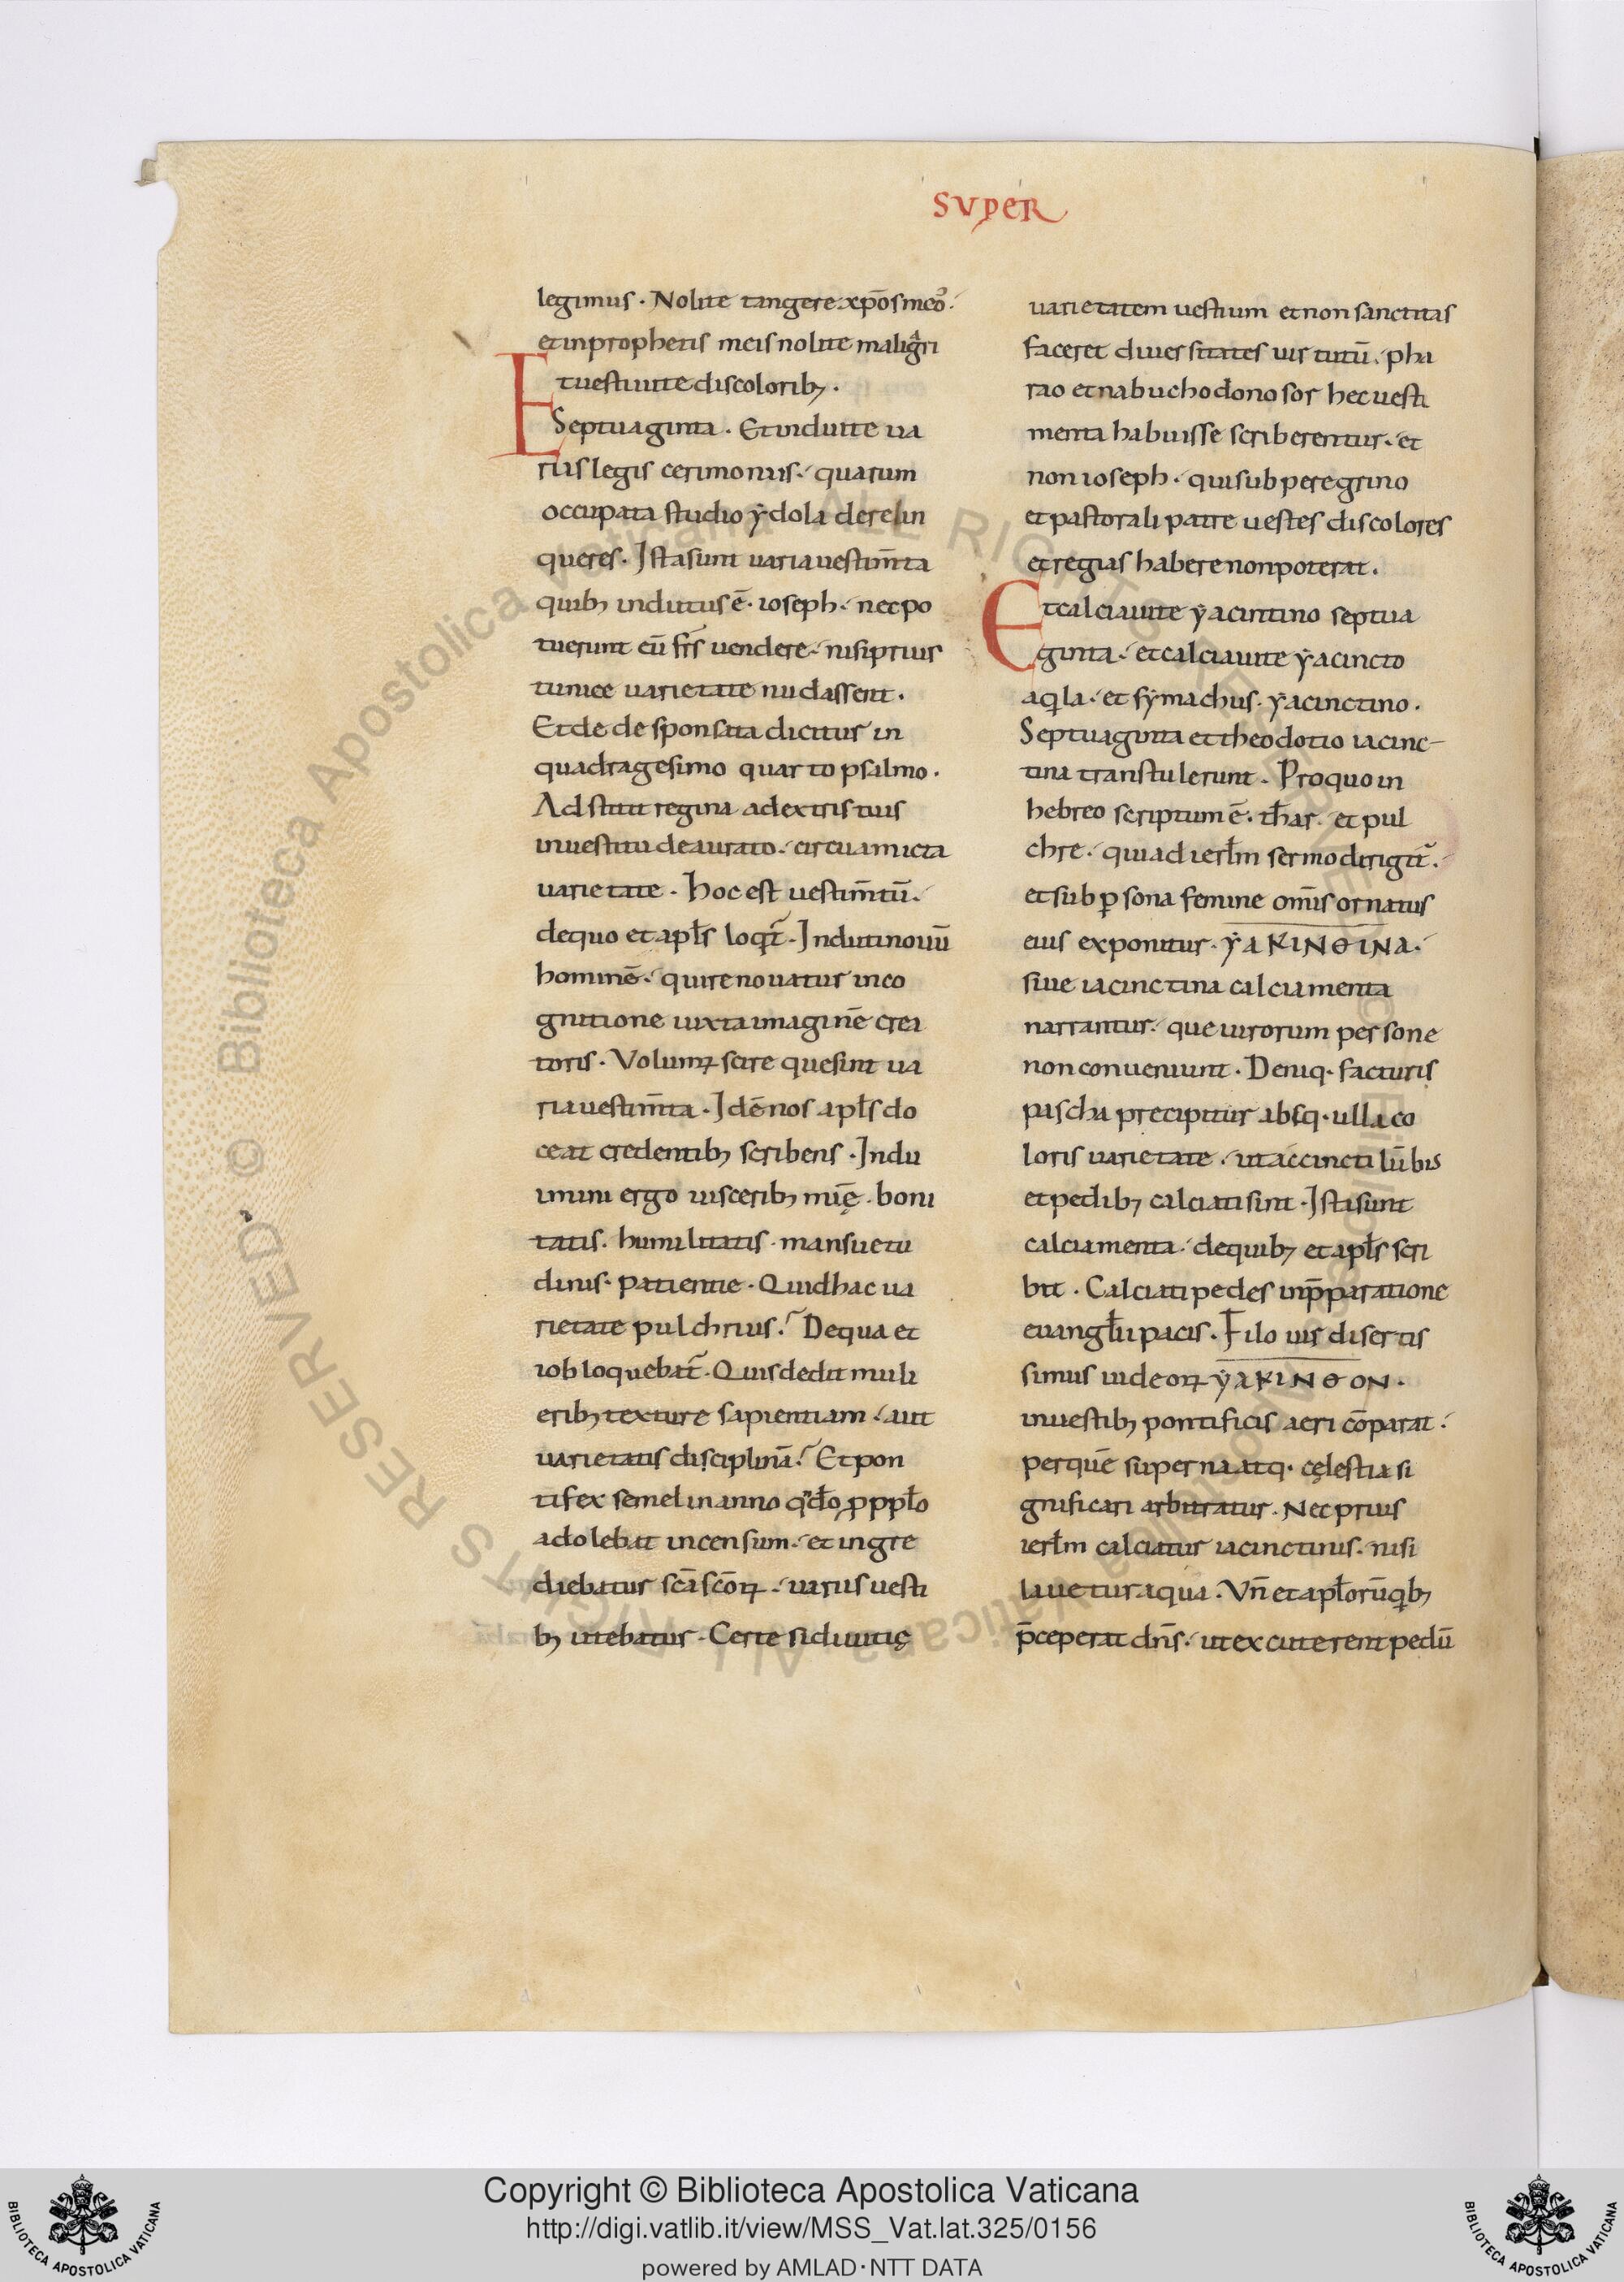 SVPER
legimus · Nolite tangere xp̄os meoˀ·
et in prophetis meis nolite maligͣri
Et uestiui te discolorib; ·
Septuaginta · Et indui te ua
riis legis cerimoniis · quarum
occupata studio ẏdola derelin
queres · Ista sunt uaria uestim̄ta
quib; indutus ē · ioseph · nec po
tuerunt eū fr̄s uendere · nisi prius
tunice uarietate nudassent ·
Et de desponsata dicitur in
quadragesimo quarto psalmo ·
Adstitit regina a dextris tuis
in uestitu deaurato · circuamicta
uarietate · Hoc est uestim̄tū ·
de quo et apl̄s loqͥt̄ · Induti nouū
hominē · qui renouatur in co
gnitione iuxta imaginē crea
toris · Volumꝰ scire que sint ua
ria uestim̄ta · Idē nos apl̄s do
ceat credentib; scribens · Indu
imini ergo uisceribꝫ miē · boni
tatis · humilitatis · mansuetu
dinis · patientie · Quid hac ua
rietate pulchrius? De qua et
iob loquebat̄ · Quis dedit muli
erib; texture sapientiam · aut
uarietatis disciplinā? Et pon
tifex semel in anno qͣdo ꝓ ppl̄o
adolebat incensum · et ingre
diebatur sc̄a sc̄oꝝ · uariis uesti
b; utebatur · Certe si diuitię
uarietatem uestium et non sanctitas
faceret diuersitates uirtutū · pha
rao et nabuchodonosor hec uesti
menta habuisse scriberentur · et
non ioseph · qui sub peregrino
et pastorali patre uestes discolores
et regias habere non poterat ·
Et calciaui te ẏacintino septua
ginta · et calciaui te ẏacincto
aqͥla · et sẏmachus · ẏacinctino ·
Septuaginta et theodotio iacinc-
tina transtulerunt · Pro quo in
hebreo scriptum ē · th̄as · et pul
chre · quia ad ierl̄m sermo dirigit̄ ·
et sub ꝑsona femine om̄is ornatus
eius exponitur · ẏAKINΘINA ·
siue iacinctina calciamenta
narrantur · que uirorum persone
non conueniunt · Deniq· facturis
pascha precipitur absq· ulla co
loris uarietate · ut accincti lūbis
et pedib; calciati sint · Ista sunt
calciamenta · de quib; et apl̄s scri
bit · Calciati pedes in p̄paratione
euangl̄ii pacis · Filo uir disertis
simus iudeoꝝ ẏAKINΘON ·
in uestib; pontificis aeri cōparat ·
per quē superna atq· cęlestia si
gnificari arbitratur · Nec prius
ierl̄m calciatur iacinctinis · nisi
lauetur aqua · Vn̄ et apl̄orū qͥb;
p̄ceperat dn̄s · ut excuterent pedū
Copyright © Biblioteca Apostolica Vaticana
http://digi.vatlib.it/view/MSS_Vat.lat.325/0156
powered by AMLAD·NTT DATA